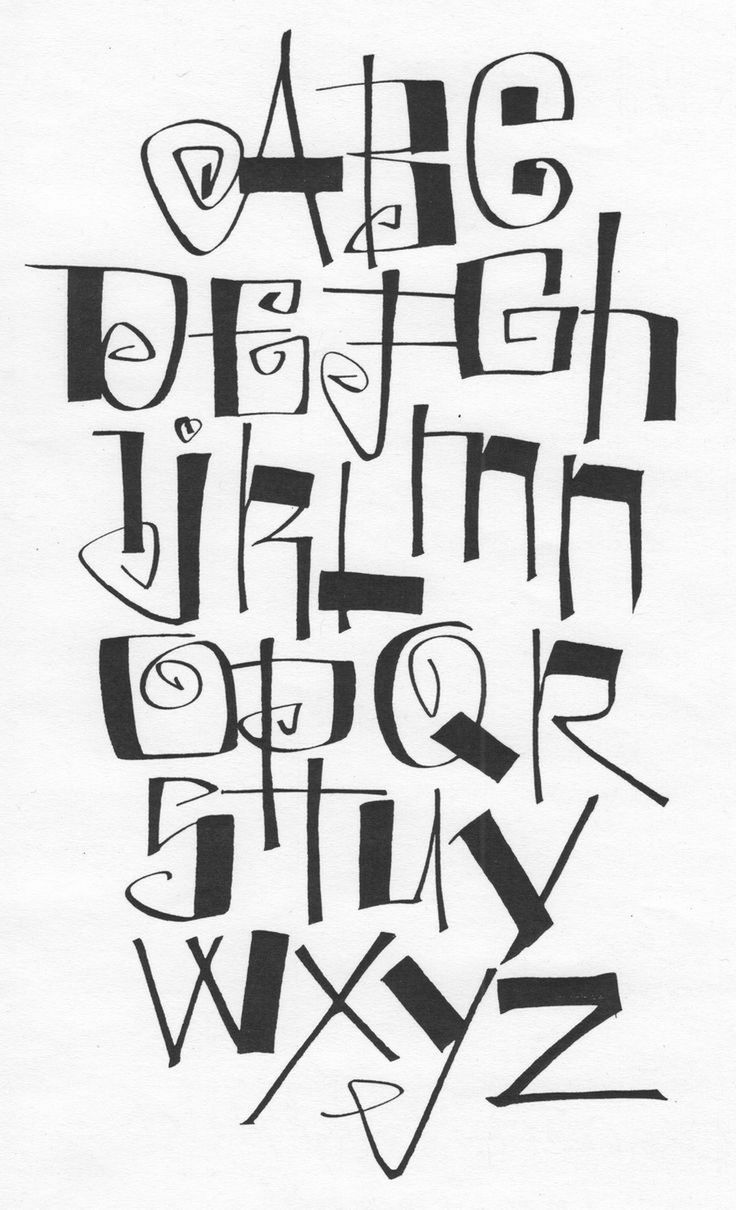 ABC
DEFGh
IjKLmn
OPQR
STUV
WXYZ